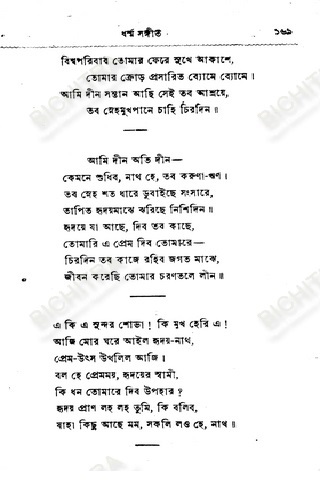 ধর্ম্ম সঙ্গীত ১৬৯
বিশ্বপরিবার তোমার ফেরে সুখে আকাশে,
তোমার ক্রোড় প্রসারিত ব্যোমে ব্যোমে॥
আমি দীন সন্তান আছি সেই তব আশ্রয়ে,
তব স্নেহমুখপানে চাহি চিরদিন॥
আমি দীন অতি দীন—
কেমনে শুধিব, নাথ হে, তব করুণা-ঋণ।
তব স্নেহ শত ধারে ডুবাইছে সংসারে,
তাপিত হৃদয়মাঝে ঝরিছে নিশিদিন॥
হৃদয়ে যা আছে, দিব তব কাছে,
তোমারি এ প্রেম দিব তোমারে—
চিরদিন তব কাজে রহিব জগত মাঝে,
জীবন করেছি তোমার চরণতলে লীন॥
এ কি এ সুন্দর শোভা! কি মুখ হেরি এ!
আজি মোর ঘরে আইল হৃদয়-নাথ,
প্রেম-উৎস উথলিল আজি॥
বল হে প্রেমময়, হৃদয়ের স্বামী,
কি ধন তোমারে দিব উপহার?
হৃদয় প্রাণ লহ লহ তুমি, কি বলিব,
যাহা কিছু আছে মম, সকলি লও হে, নাথ॥